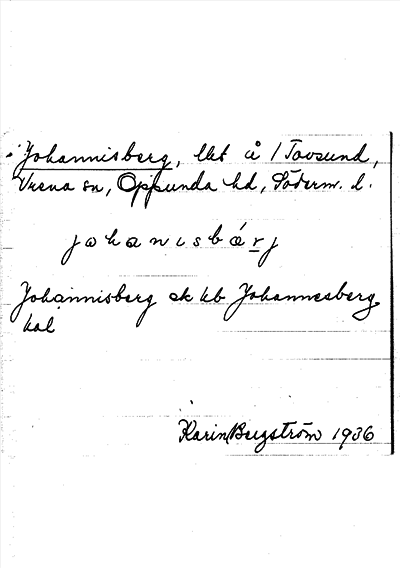 Johannisberg, lht å 1 Tovsund,
Vrena sn, Oppunda hd, Söderm. l.
johanisbärj
Johannisberg ek kb Johannesberg
hal
Karin Bergström 1936